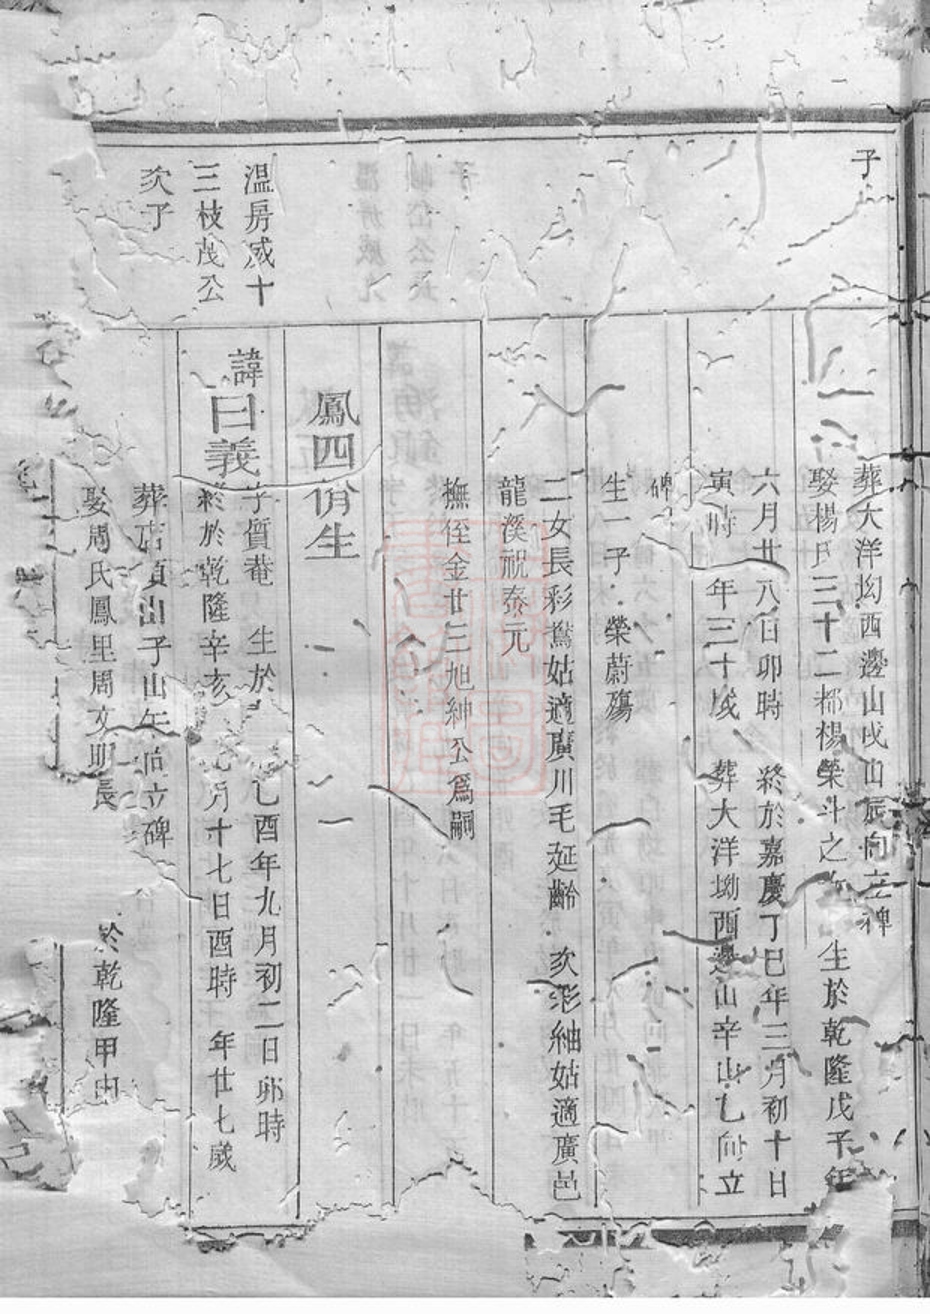 子
葬大洋坳西邊山戌山辰向立碑
娶楊氏三十二都楊榮斗之女 生於乾隆戊子年
六月廿八日卯時 終於嘉慶丁巳年三月初十日
寅時 年三十歲 葬大洋坳西邊山辛山乙向立
碑
生一子 榮蔚殤
二女長彩鸞姑適廣川毛延齡 次彩紬姑適廣邑
龍溪祝泰元
撫侄金廿三旭紳公爲嗣
鳳四 生
溫房威十
三枝茂公
次子
諱曰義
字質菴 生於 乙酉年九月初二日卯時
終於乾隆辛亥 月十七日酉時 年廿七歲
葬店 山子山午向立碑
娶周氏鳳里周文明長 於乾隆甲申